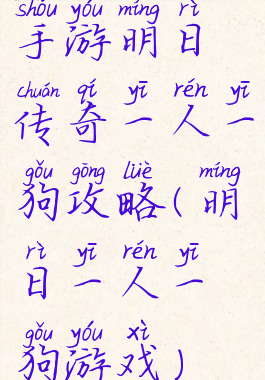 shǒu yóu míng rì
手游明日
chuán qí yī rén yī
传奇一人一
gǒu gōng lüè míng
狗攻略(明
rì yī rén yī
日一人一
gǒu yóu xì
狗游戏)